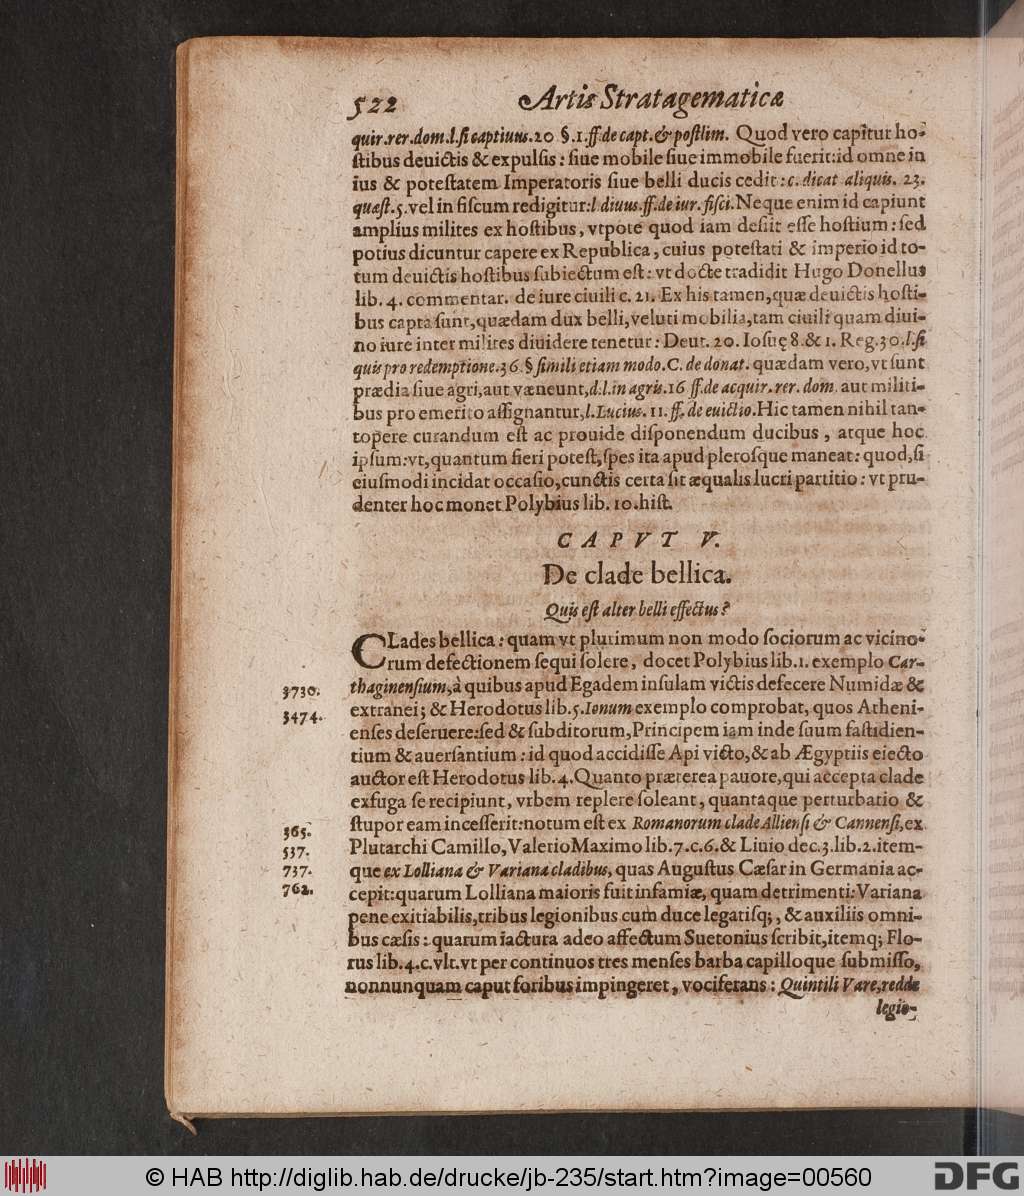 522 Artis Stratagematicæ
quir.rer.dom.l.ſi captiuus.20 §.1.ff.de capt.& poſtlim. Quod vero capitur ho-
ſtibus deuictis & expulſis: ſiue mobile ſiue immobile fuerit:id omne in
ius & poteſtatem Imperatoris ſiue belli ducis cedit:c. dicat aliquis. 23.
quæſt.5.vel in fiſcum redigitur:l diuus.ff.de iur. fiſci.Neque enim id capiunt
amplius milites ex hoſtibus, vtpote quod iam deſiit eſſe hoſtium: ſed
potius dicuntur capere ex Republica, cuius poteſtati & imperio id to-
tum deuictis hoſtibus ſubiectum eſt: vt docte tradidit Hugo Donellus
lib. 4. commentar. de iure ciuili c. 21. Ex his tamen,quæ deuictis hoſti-
bus capta ſunt,quædam dux belli,veluti mobilia,tam ciuili quam diui-
no iure inter milites diuidere tenetur: Deut. 20. Ioſuę 8.& 1. Reg.30.l.ſi
quis pro redemptione.36.§ ſimili etiam modo.C. de donat. quædam vero,vt ſunt
prædia ſiue agri,aut væneunt,d.l.in agris.16 ff.de acquir.rer. dom. aut militi-
bus pro emerito aſſignantur,l.Lucius. 11.ff. de euictio.Hic tamen nihil tan-
topere curandum eſt ac prouide diſponendum ducibus, atque hoc
ipſum:vt,quantum fieri poteſt,ſpes ita apud pleroſque maneat: quod,ſi
eiuſmodi incidat occaſio,cunctis certa ſit æqualis lucri partitio: vt pru-
denter hoc monet Polybius lib. 10.hiſt.
CAPVT V.
De clade bellica.
Quis eſt alter belli effectus?
CLades bellica: quam vt plurimum non modo ſociorum ac vicino-
rum defectionem ſequi ſolere, docet Polybius lib.1. exemplo Car-
3730. thaginenſium,à quibus apud Egadem inſulam victis defecere Numidæ &
3474. extranei; & Herodotus lib.5.Ionum exemplo comprobat, quos Atheni-
enſes deſeruere:ſed & ſubditorum,Principem iam inde ſuum faſtidien-
tium & auerſantium: id quod accidiſſe Api victo,& ab Ægyptiis eiecto
auctor eſt Herodotus lib.4.Quanto præterea pauore,qui accepta clade
exfuga ſe recipiunt, vrbem replere ſoleant, quantaque perturbatio &
365. ſtupor eam inceſſerit:notum eſt ex Romanorum clade Allienſi & Cannenſi,ex
537. Plutarchi Camillo, Valerio Maximo lib.7.c.6.& Liuio dec.3.lib.2.item-
737. que ex Lolliana & Variana cladibus, quas Auguſtus Cæſar in Germania ac-
762. cepit:quarum Lolliana maioris fuit infamiæ, quam detrimenti: Variana
pene exitiabilis,tribus legionibus cum duce legatiſq;, & auxiliis omni-
bus cæſis: quarum iactura adeo affectum Suetonius ſcribit,itemq; Flo-
rus lib.4.c.vlt.vt per continuos tres menſes barba capilloque ſubmiſſo,
nonnunquam caput foribus impingeret, vociferans: Quintili Vare,redde
legio-
© HAB http://diglib.hab.de/drucke/jb-235/start.htm?image=00560
DFG